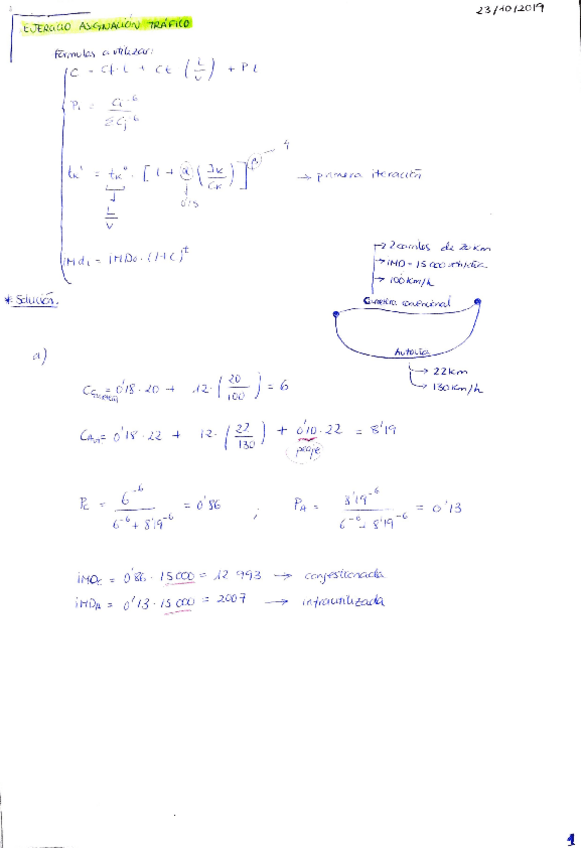 23/10/2019
EJERCICIO ASIGNACIÓN TRÁFICO
Fórmulas a utilizar:
C = Cf · L + Ct (L/V) + P L
Pi = Ci^-6 / ΣCj^-6
tk' = tk° · [1 + α (Jk/Ck)]^β → primera iteración
4
0'15
L/V
iMDt = iMD0 · (1+C)^t
→ 2 carriles de 20 km
→ 100 km/h
Carretera convencional
Autovía
→ 22km
→ 130 km/h
* Solución.
a)
= 0'18 · 20 + 12 · (20/100) = 6
= 0'18 · 22 + 12 · (22/130) + 0'10 · 22 = 8'19
peaje
Pc = 6^-6 / 6^-6 + 8'19^-6 = 0'86 ; PA = 8'19^-6 / 6^-6 + 8'19^-6 = 0'13
iMDc = 0'86 · 15000 = 12 993 → congestionada
iMDA = 0'13 · 15000 = 2007 → infrautilizada
1